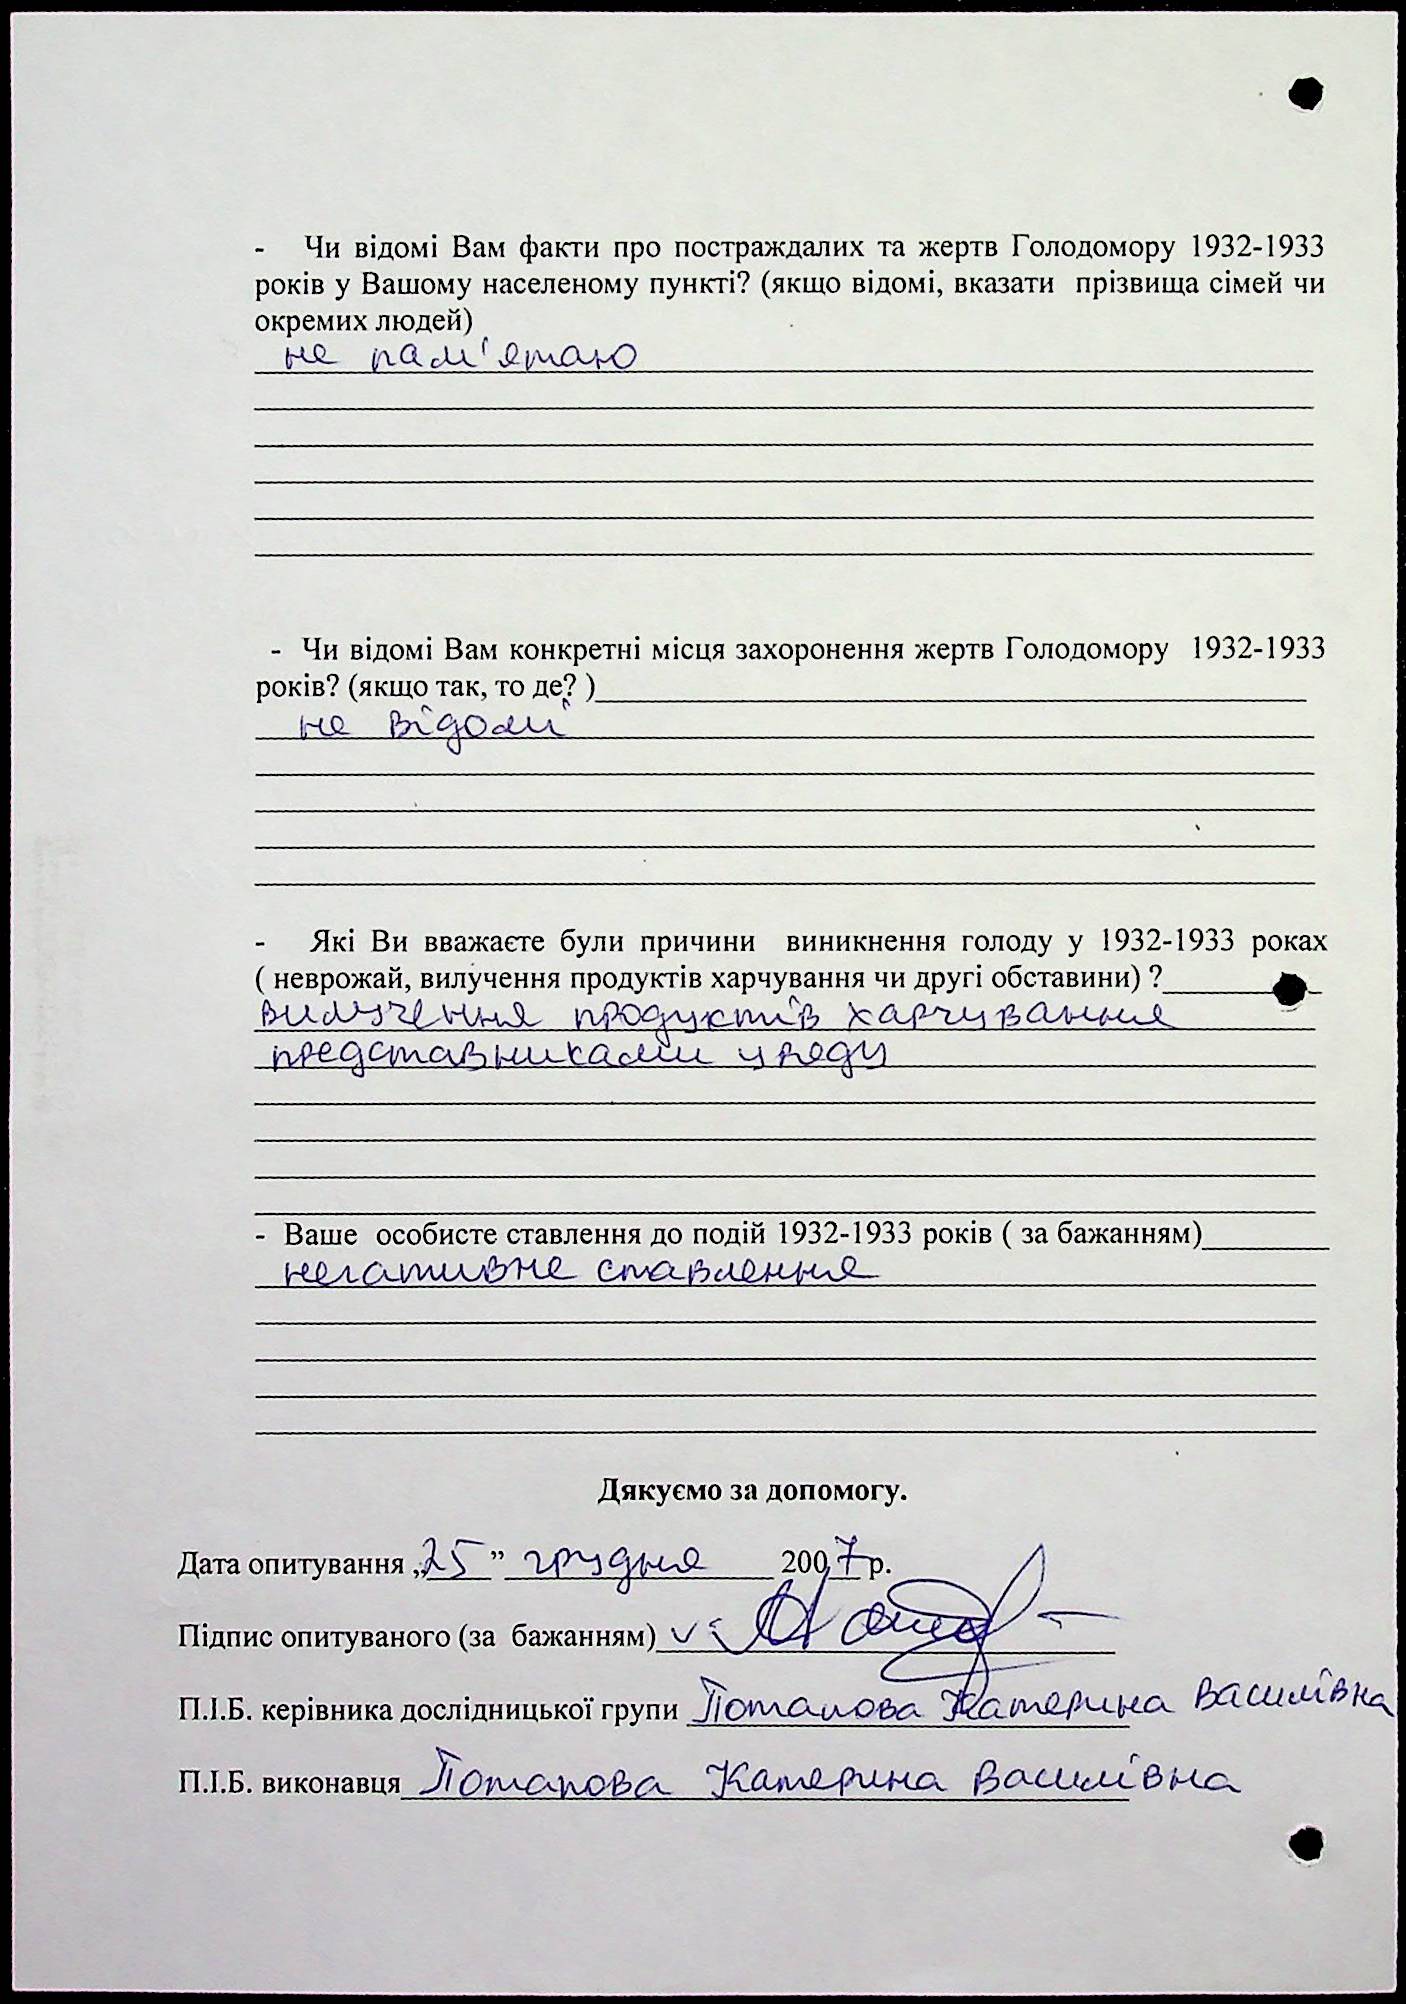 - Чи відомі Вам факти про постраждалих та жертв Голодомору 1932-1933
років у Вашому населеному пункті? (якщо відомі, вказати прізвища сімей чи
окремих людей)
не пам'ятаю
- Чи відомі Вам конкретні місця захоронення жертв Голодомору 1932-1933
років? (якщо так, то де? )
не відомі
- Які Ви вважаєте були причини виникнення голоду у 1932-1933 роках
( неврожай, вилучення продуктів харчування чи другі обставини) ?
вилучення продуктів харчування
представниками уряду
- Ваше особисте ставлення до подій 1932-1933 років ( за бажанням)
негативне ставлення
Дякуємо за допомогу.
Дата опитування „25” грудня 2007 р.
Підпис опитуваного (за бажанням) v
П.І.Б. керівника дослідницької групи Потапова Катерина Василівна
П.І.Б. виконавця Потапова Катерина Василівна